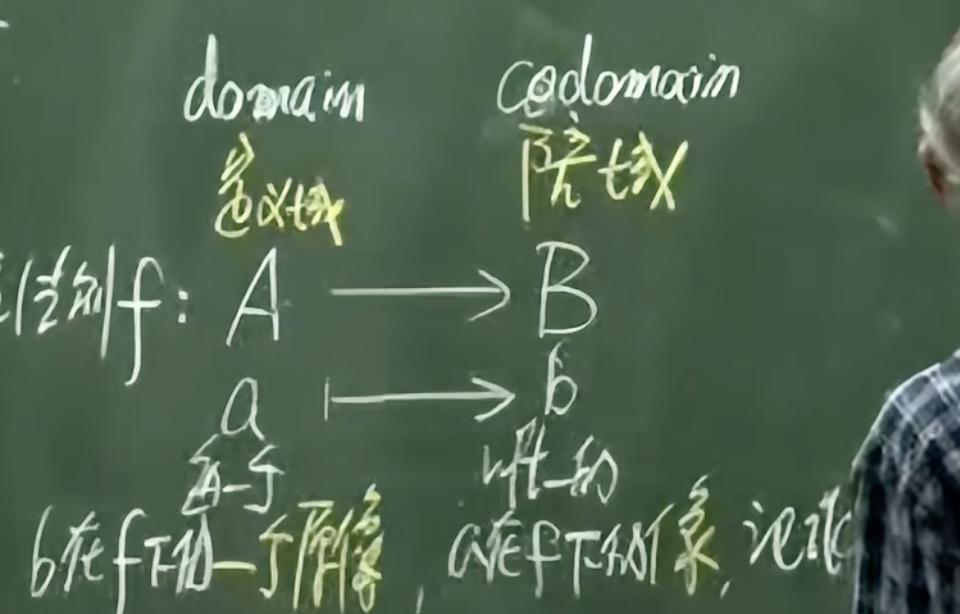 domain codomain
定义域 陪域
法则f: A ⟶ B
a ⟼ b
每一个 唯一的
b在f下的一个原像, a在f下的像, 记